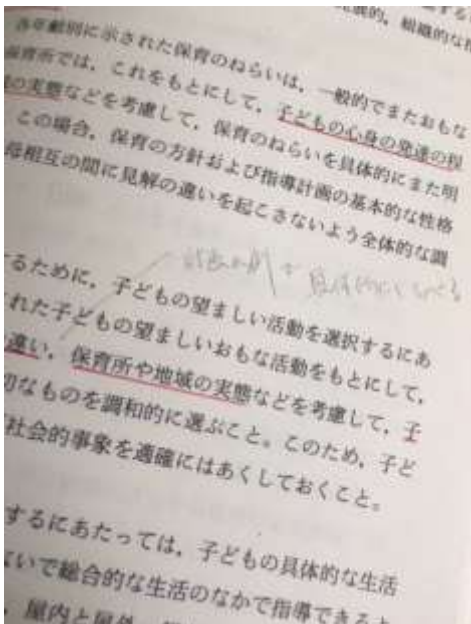 発展的，組織的な
各年齢別に示された保育のねらいは，一般的でまたおもな
保育所では，これをもとにして，子どもの心身の発達の程
の実態などを考慮して，保育のねらいを具体的にまた明
この場合，保育の方針および指導計画の基本的な性格
母相互の間に見解の違いを起こさないよう全体的な調
るために，子どもの望ましい活動を選択するにあ
れた子どもの望ましいおもな活動をもとにして，
違い，保育所や地域の実態などを考慮して，子
切なものを調和的に選ぶこと。このため，子ど
社会的事象を適確にはあくしておくこと。
するにあたっては，子どもの具体的な生活
ないで総合的な生活のなかで指導できるよ
，屋内と屋外